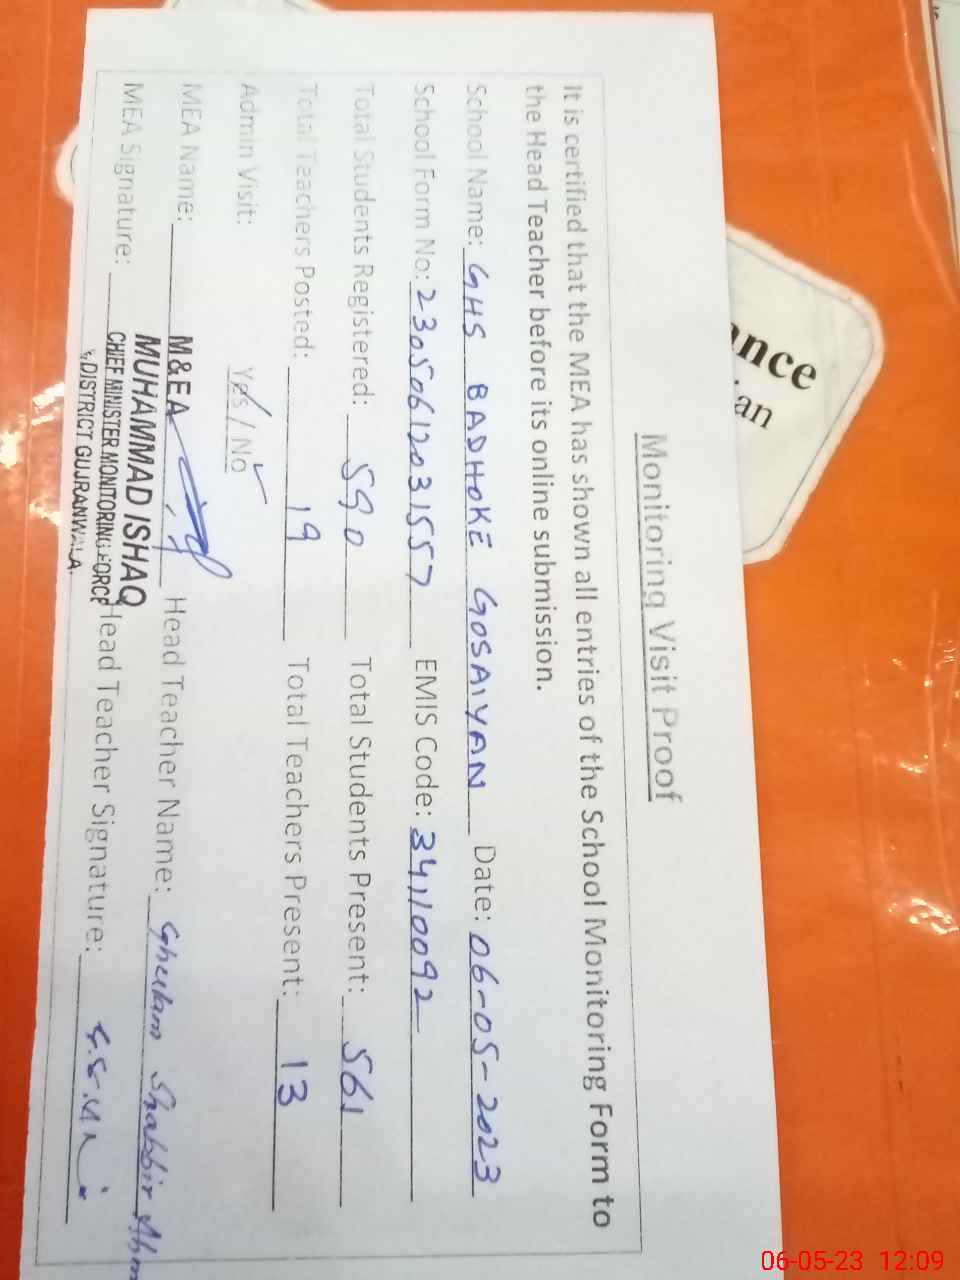 Monitoring Visit Proof
It is certified that the MEA has shown all entries of the School Monitoring Form to
the Head Teacher before its online submission.
School Name: GHS BADHOKE GOSAIYAN Date: 06-05-2023
School Form No: 23050612031557 EMIS Code: 34110092
Total Students Registered: 590 Total Students Present: 561
Total Teachers Posted: 19 Total Teachers Present: 13
Admin Visit: Yes / No
MEA Name: Head Teacher Name: Ghulam Shabbir Ahm
MEA Signature: Head Teacher Signature:
M&EA
MUHAMMAD ISHAQ
CHIEF MINISTER MONITORING FORCE
DISTRICT GUJRANWALA.
nce
an
06-05-23 12:09